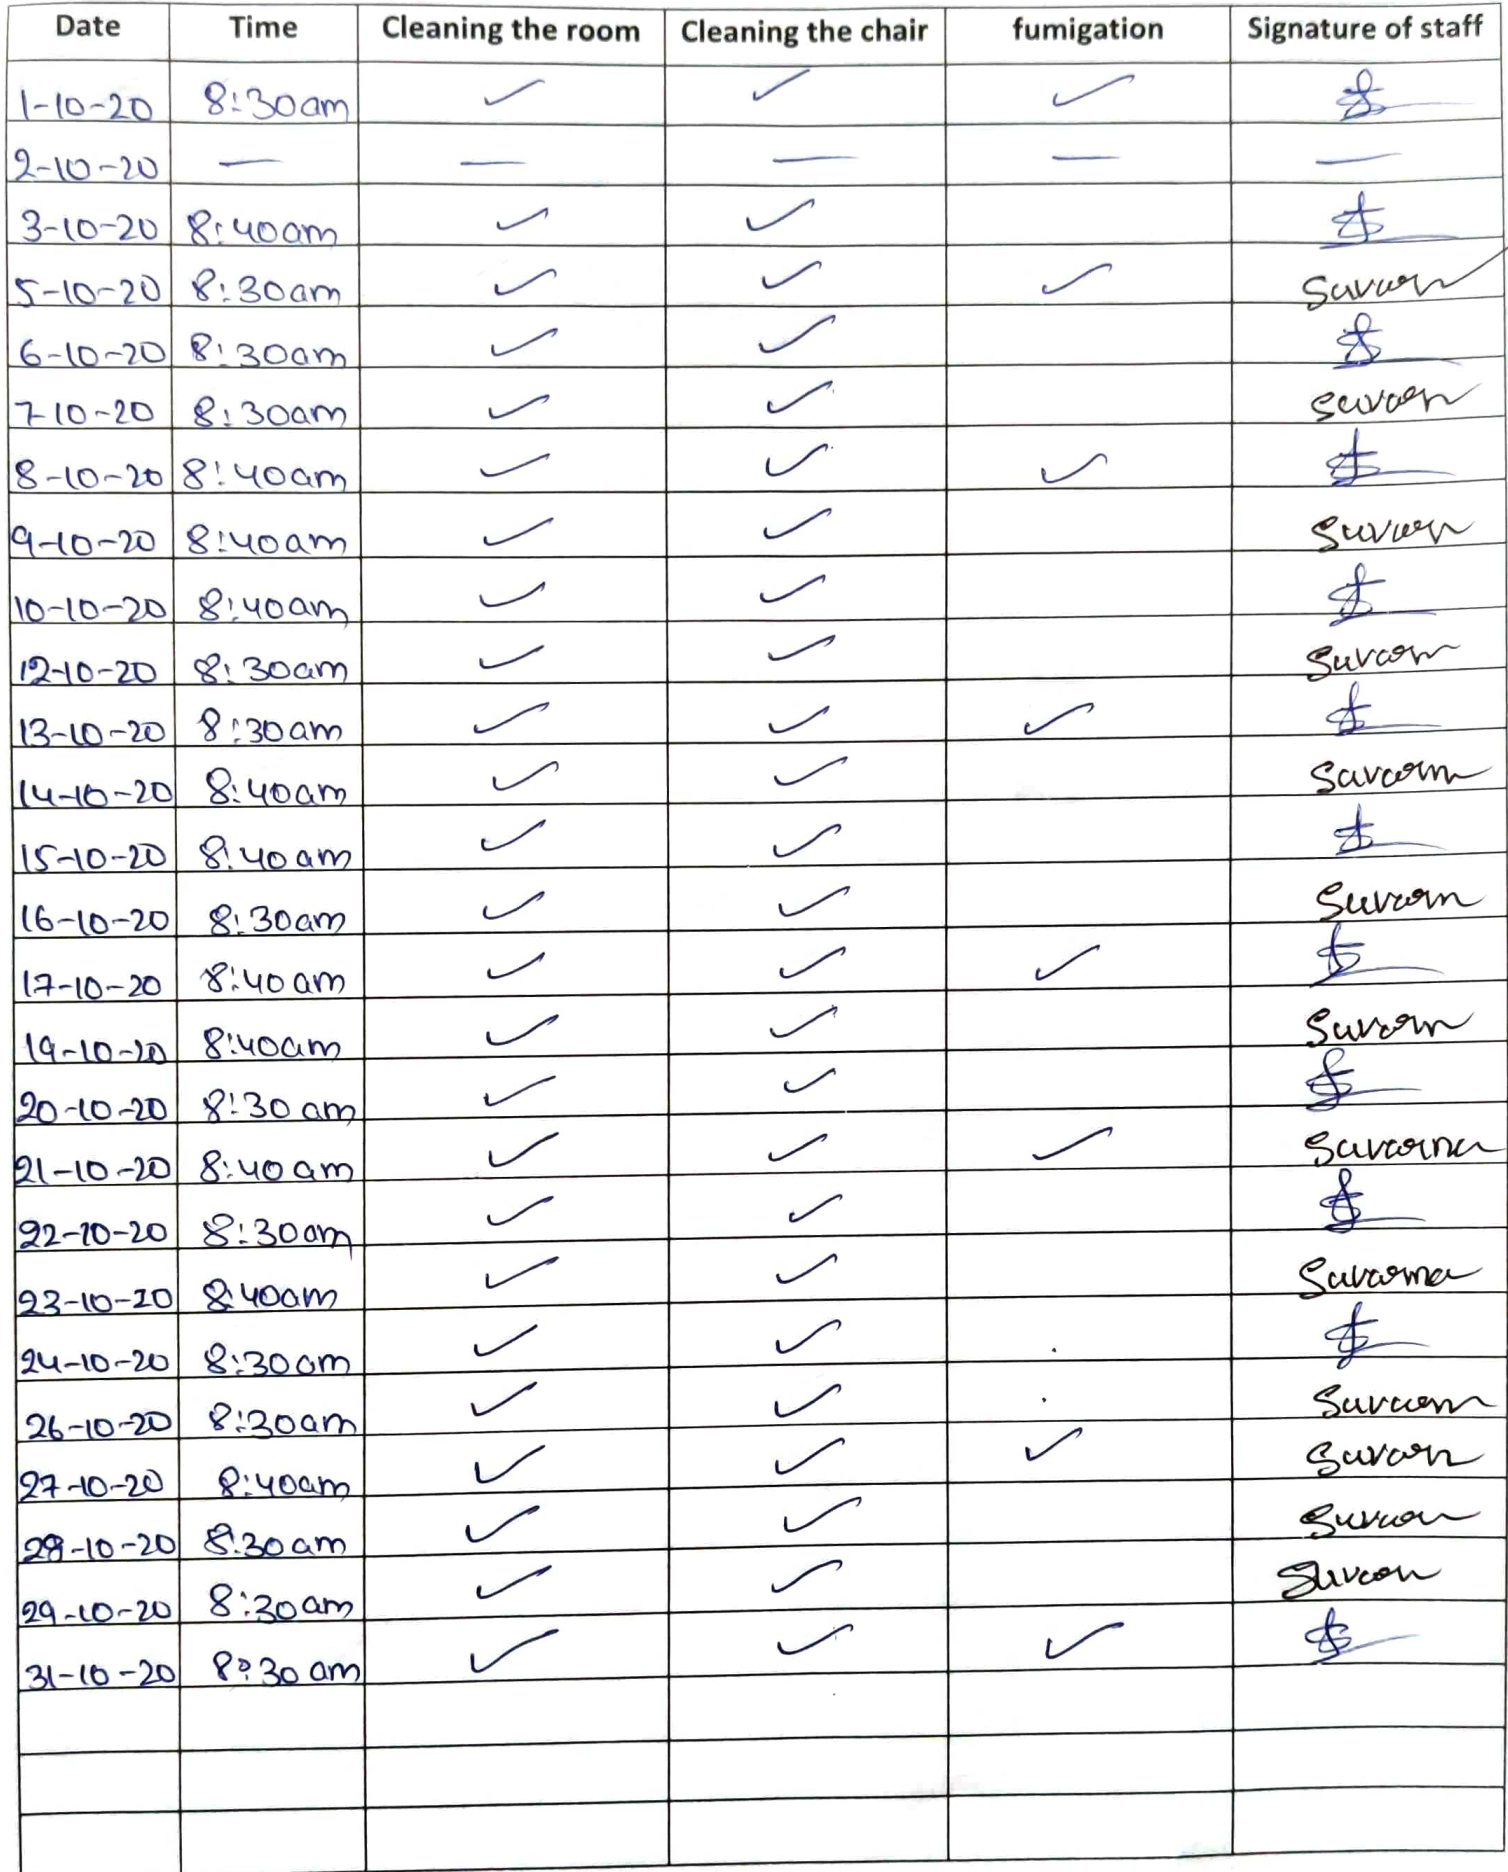 Date Time Cleaning the room Cleaning the chair fumigation Signature of staff
1-10-20 8:30am ✓ ✓ ✓
2-10-20 — — — — —
3-10-20 8:40am ✓ ✓
5-10-20 8:30am ✓ ✓ ✓ Suvarn
6-10-20 8:30am ✓ ✓
7-10-20 8:30am ✓ ✓ Suvarn
8-10-20 8:40am ✓ ✓ ✓
9-10-20 8:40am ✓ ✓ Suvarn
10-10-20 8:40am ✓ ✓
12-10-20 8:30am ✓ ✓ Suvarn
13-10-20 8:30am ✓ ✓ ✓
14-10-20 8:40am ✓ ✓ Suvarn
15-10-20 8:40am ✓ ✓
16-10-20 8:30am ✓ ✓ Suvarn
17-10-20 8:40am ✓ ✓ ✓
19-10-20 8:40am ✓ ✓ Suvarn
20-10-20 8:30am ✓ ✓
21-10-20 8:40am ✓ ✓ ✓ Suvarna
22-10-20 8:30am ✓ ✓
23-10-20 8:40am ✓ ✓ Suvarna
24-10-20 8:30am ✓ ✓
26-10-20 8:30am ✓ ✓ Suvarn
27-10-20 8:40am ✓ ✓ ✓ Suvarn
28-10-20 8:30am ✓ ✓ Suvarn
29-10-20 8:30am ✓ ✓ Suvarn
31-10-20 8:30am ✓ ✓ ✓